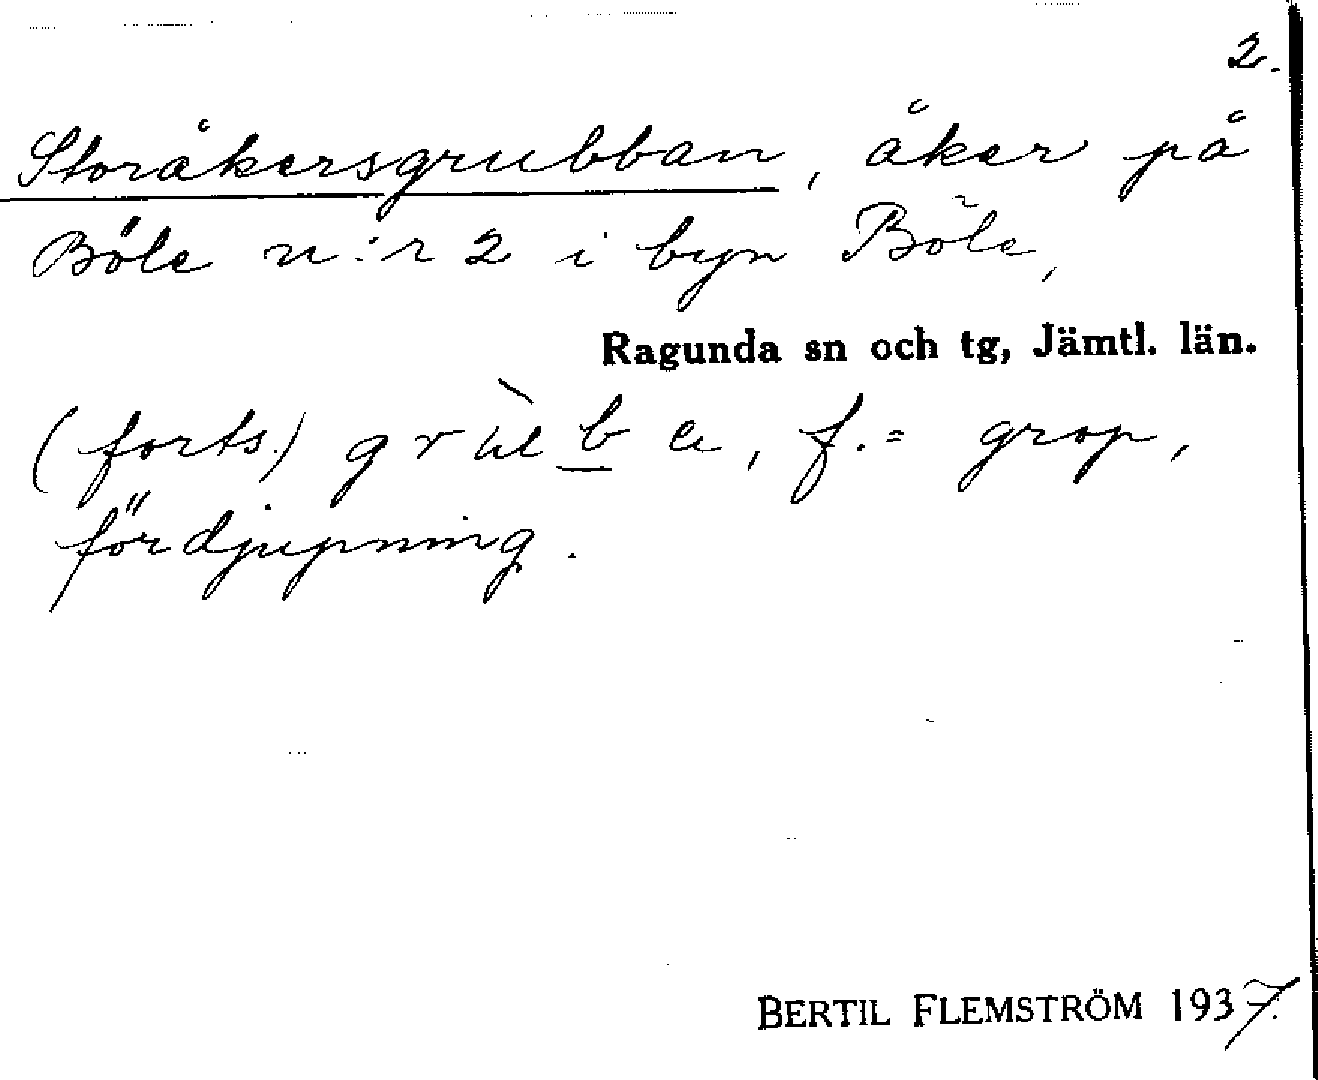 2.
Storåkersgrubban, åker på
Böle n:r 2 i byn Böle,
Ragunda sn och tg, Jämtl. län.
(forts.) , f. = grop,
fördjupning.
BERTIL FLEMSTRÖM 1937.